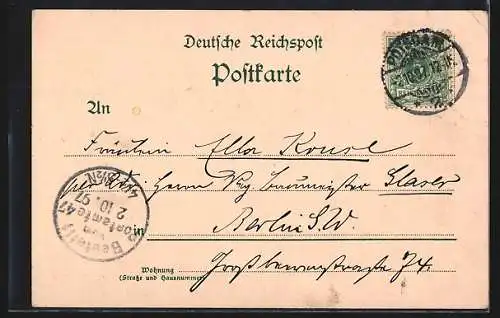 Deutsche Reichspost
Postkarte
An
Fräulein Ella
Herrn Reg. Baumeister Glaser
in Berlin S.W.
Wohnung
(Straße und Hausnummer)
Großbeerenstrasse 74.
POTSDAM
Bestellt
vom
Postamte 47
2.10.97